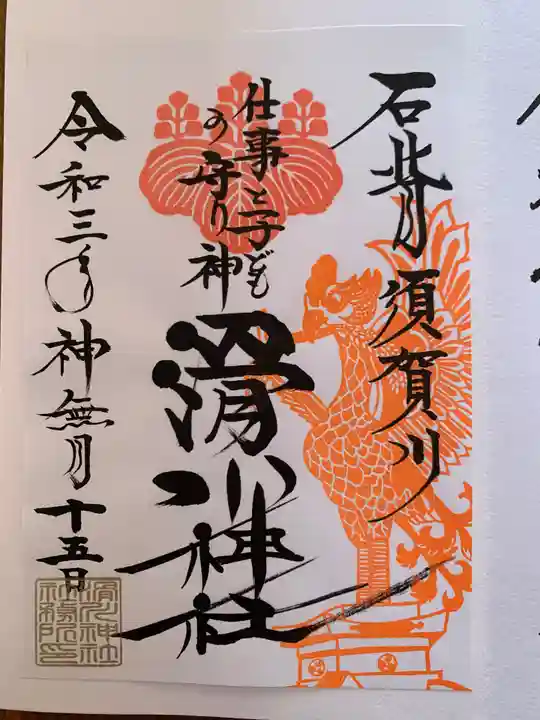 石背 須賀川
仕事と子ども
の守り神
滑川神社
令和三年 神無月 十五日
滑川神社
社務所印